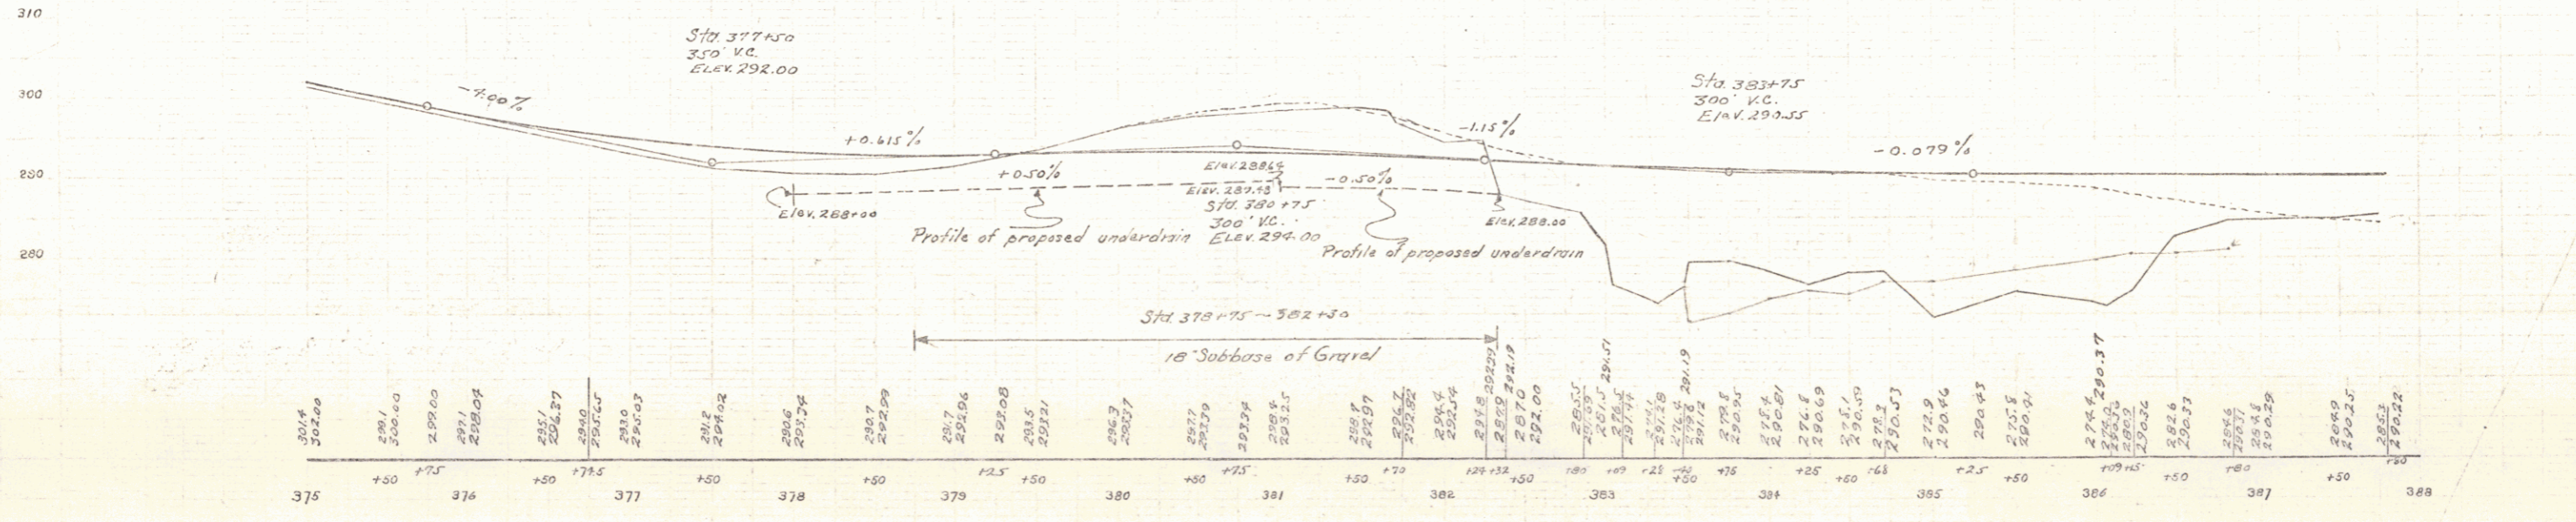 310
300
290
280
Sta. 377+50
350' V.C.
ELEV. 292.00
-4.00%
+0.615%
+0.50%
Elev. 288+00
Profile of proposed underdrain
Elev. 288.64
Elev. 287.48
Sta. 380+75
300' V.C.
ELEV. 294.00
-0.50%
Profile of proposed underdrain
-1.15%
Elev. 288.00
Sta. 383+75
300' V.C.
Elev. 290.55
-0.079%
Sta. 378+75 ~ 382+30
18" Subbase of Gravel
301.4
302.00
299.1
300.00
299.00
297.1
298.04
295.1
296.37
294.0
295.65
293.0
295.03
291.2
294.02
290.6
293.34
290.7
292.99
291.7
292.96
293.08
293.5
293.21
296.3
293.37
297.7
293.39
293.34
298.4
293.25
298.7
292.97
296.7
292.82
294.4
292.54
294.8
292.29
287.9
292.19
287.0
292.00
285.5
291.69
281.5
291.51
276.5
291.44
274.1
291.28
276.4
291.19
279.2
291.12
279.8
290.95
278.4
290.81
276.8
290.69
278.1
290.59
278.3
290.53
272.9
290.46
290.43
275.8
290.41
274.4
290.37
280.9
290.36
282.6
290.33
284.6
290.31
284.8
290.29
284.9
290.25
285.3
290.22
+50 +75 +50 +74.5 +50 +50 +25 +50 +50 +75 +50 +70 +24 +32 +50 +80 +09 +28 +48 +50 +75 +25 +50 +68 +25 +50 +09 +25 +50 +80 +50 +80
375 376 377 378 379 380 381 382 383 384 385 386 387 388